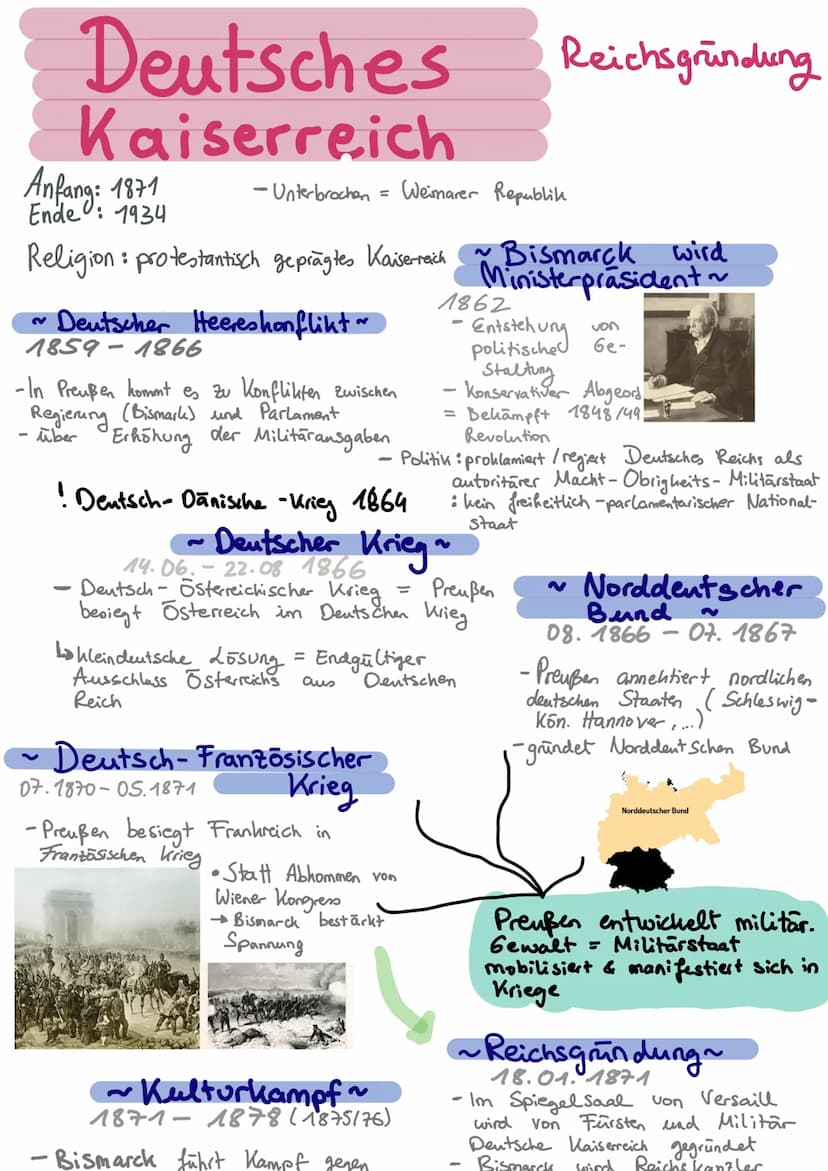 Deutsches
Kaiserreich
Reichsgründung
Anfang: 1871
Ende: 1934
- Unterbrochen = Weimarer Republik
Religion: protestantisch geprägtes Kaiserreich
~ Deutscher Heereskonflikt ~
1859 - 1866
- In Preußen kommt es zu Konflikten zwischen
Regierung (Bismark) und Parlament
- über Erhöhung der Militärausgaben
~ Bismarck wird
Ministerpräsident ~
1862
- Entstehung von
politischer Ge-
staltung
- Konservativer Abgeord
= Bekämpft 1848/49
Revolution
- Politik: proklamiert / regiert Deutsches Reichs als
autoritärer Macht- Obrigkeits- Militärstaat
: kein freiheitlich - parlamentarischer National-
staat
! Deutsch- Dänische - Krieg 1864
~ Deutscher Krieg ~
14.06. - 22.08 1866
- Deutsch- Österreichischer Krieg = Preußen
besiegt Österreich im Deutschen Krieg
↳ kleindeutsche Lösung = Endgültiger
Ausschluss Österreichs aus Deutschen
Reich
~ Norddeutscher
Bund ~
08. 1866 - 07. 1867
- Preußen annektiert nordlichen
deutschen Staaten (Schleswig-
Kön. Hannover, ...)
- gründet Norddeutschen Bund
Norddeutscher Bund
~ Deutsch- Französischer
Krieg
07.1870 - 05.1871
- Preußen besiegt Frankreich in
Französischen Krieg
• Statt Abkommen von
Wiener Kongress
→ Bismarck bestärkt
Spannung
Preußen entwickelt militär.
Gewalt = Militärstaat
mobilisiert & manifestiert sich in
Kriege
~ Reichsgründung ~
18.01. 1871
- Im Spiegelsaal von Versaill
wird von Fürsten und Militär
Deutsche Kaiserreich gegründet
- Bismarck wird Reichskanzler
~ Kulturkampf ~
1871 - 1878 (1875/76)
- Bismarck führt Kampf gegen